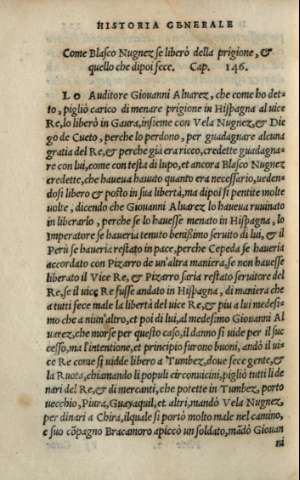 HISTORIA GENERALE
Come Blasco Nugnez se liberò della prigione, &
quello che dipoi fece. Cap. 146.
LO Auditore Giouanni Aluarez, che come ho det-
to, pigliò carico di menare prigione in Hispagna al uice
Re, lo liberò in Gaura, insieme con Vela Nugnez, & Die
go de Cueto, perche lo perdono, per guadagnare alcuna
gratia del Re, & perche gia era ricco, credette guadagna-
re con lui, come con testa di lupo, et ancora Blasco Nugnez
credette, che haueua hauuto quanto era necessario, ueden-
dosi libero & posto in sua libertà, ma dipoi si pentite molte
uolte, dicendo che Giouanni Aluarez lo haueua ruuinato
in liberarlo, perche se lo hauesse menato in Hispagna, lo
Imperatore se haueria tenuto benissimo seruito di lui, & il
Perù se haueria restato in pace, perche Cepeda se haueria
accordato con Pizarro de un'altra maniera, se non hauesse
liberato il Vice Re, & Pizarro saria restato seruitore del
Re, se il uice Re fusse andato in Hispagna, di maniera che
a tutti fece male la libertà del uice Re, & piu a lui medesi-
mo che a niun'altro, et poi di lui, al medesimo Giouanni Al
uarez, che morse per questo caso, il danno si uide per il suc
cesso, ma l'intentione, et principio furono buoni, andò il ui-
ce Re come si uidde libero a Tumbez, doue fece gente, &
la Ruota, chiamando li populi circonuicini, pigliò tutti li de
nari del Re, & di mercanti, che potette in Tumbez, porto
uecchio, Piura, Guayaquil, et altri, mandò Vela Nugnez,
per dinari a Chira, ilquale si portò molto male nel camino,
e suo cõpagno Bracamoro apiccò un soldato, mãdò Giouan
ni